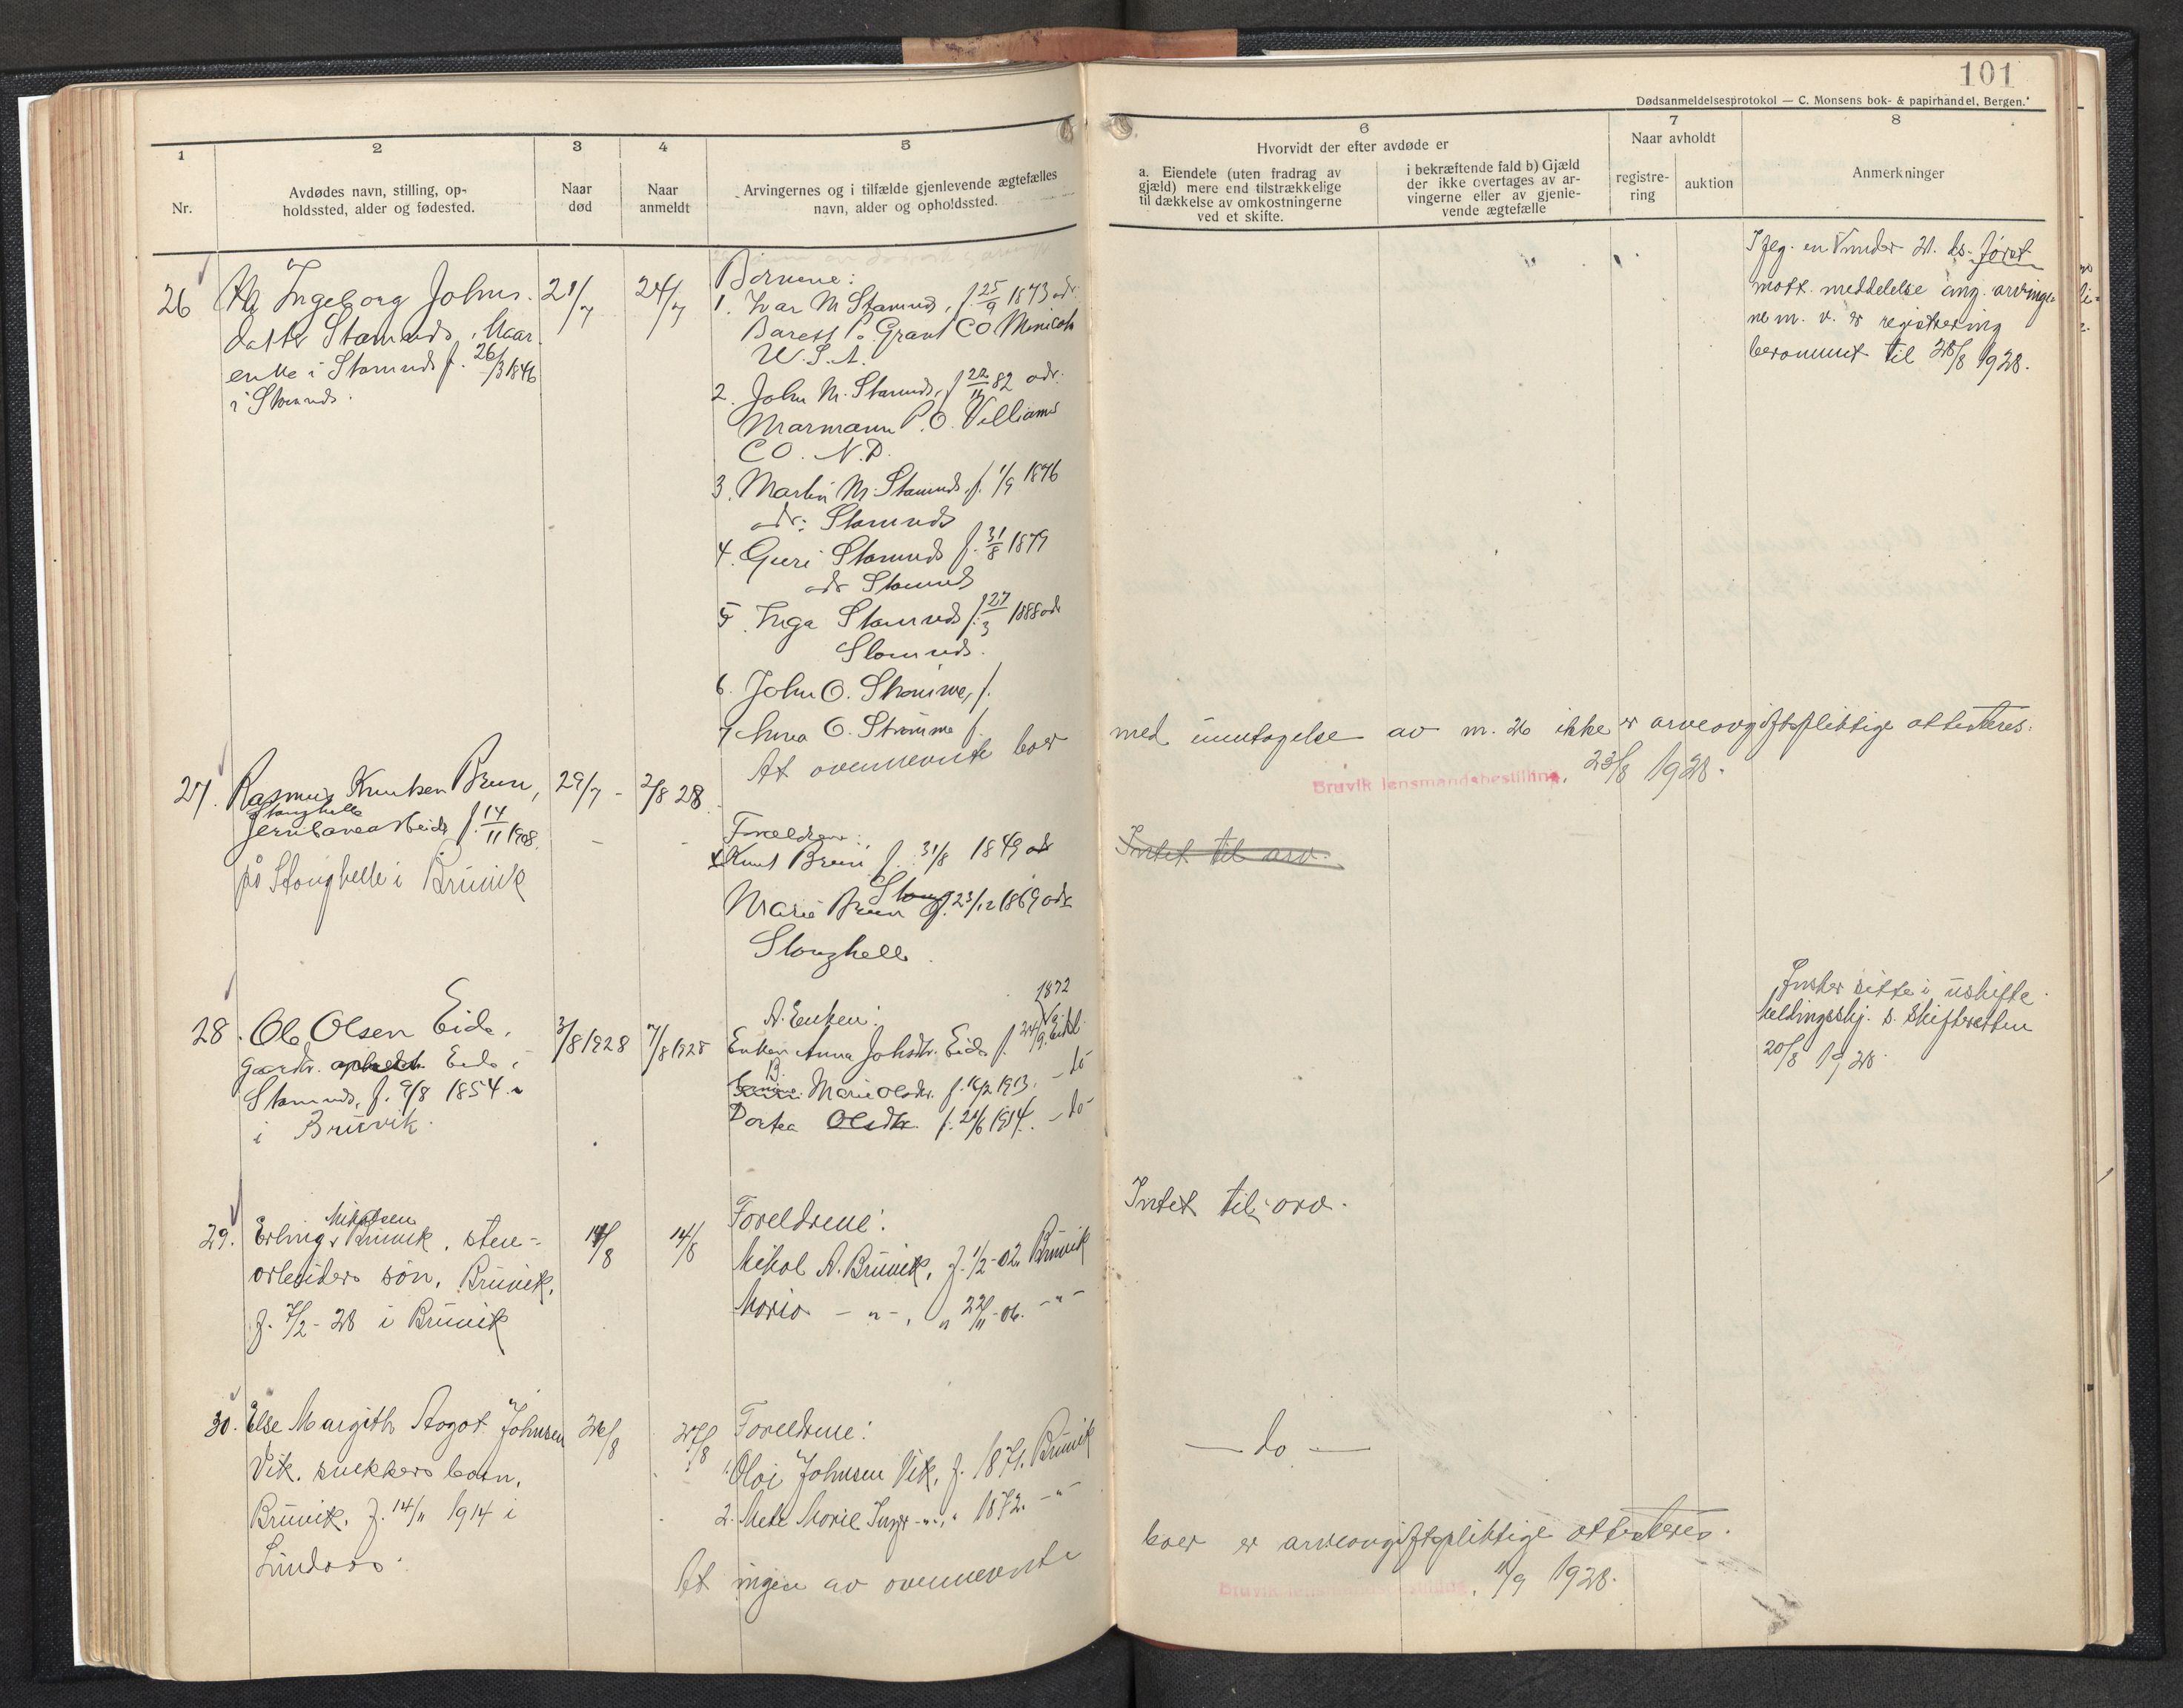 101
Dødsanmeldelsesprotokol — C. Monsens bok- & papirhandel, Bergen.
1
Nr.
2
Avdødes navn, stilling, op-
holdssted, alder og fødested.
3
Naar
død
4
Naar
anmeldt
5
Arvingernes og i tilfælde gjenlevende ægtefælles
navn, alder og opholdssted.
6
Hvorvidt der efter avdøde er
a. Eiendele (uten fradrag av
gjæld) mere end tilstrækkelige
til dækkelse av omkostningerne
ved et skifte.
i bekræftende fald b) Gjæld
der ikke overtages av ar-
vingerne eller av gjenle-
vende ægtefælle
7
Naar avholdt
registre-
ring
auktion
8
Anmerkninger
26
Ingeborg Johns-
datter Stamnes,
enke i Stamnes f. 26/3 1846
i Stamnes.
21/7
24/7
Børnene:
1. Ivar M. Stamnes, f. 25/9 1873 adr
Barett P.O. Grant CO
U.S.A.
2. John M. Stamnes, f 22/11 82 adr:
Marmann P.O. Villiams
CO. N.D.
3. Martin M. Stamnes, f. 1/9 1876
adr: Stamnes
4. Guri Stamnes f. 31/8 1879
adr Stamnes
5. Inga Stamnes f. 27/3 1888 adr
Stamnes.
6. John O. Straume, f.
7 Anna O. Straume f.
At ovennevnte boer
med unntagelse av nr. 26 ikke er arveavgiftspliktige attesteres:
Bruvik lensmandsbestilling, 23/8 1928.
mott. meddelelse ang. arvinge-
ne m. v. er registrering
berammet til 28/8 1928.
27.
Rasmus Knutsen Brun,
Stanghelle
jernbanearbeider f. 14/11 1908.
på Stanghelle i Bruvik
29/7 -
2/8 28.
Foreldrene:
Knut Brun f. 31/8 1849 adr
Stang
Marie Brun f. 23/12 1869 adr
Stanghelle.
Intet til arv.
28.
Ole Olsen Eide,
gaardbr. Eide i
Stamnes, f. 9/8 1854
i Bruvik.
3/8 1928
7/8 1928
A. Enken:
1872
Enken Anna Johsdtr. Eide f. 24/9. Eide
B.
Marie Olsdtr. f. 16/2 1913. - do
Dortea Olsdtr. f. 21/6 1914. - do -
Ønsker sitte i uskifte.
Meldingsskj. s. Skifteretten
20/8 1928.
29.
Mikalsen
Erling Bruvik, sten-
arbeiders søn, Bruvik,
f. 7/2 - 28 i Bruvik
14/8
14/8
Foreldrene:
Mikal A. Bruvik, f. 1/2-02. Bruvik
Maria - " - , " 22/11-06. - " -
Intet til arv.
30.
Else Margith Aagot Johnsen
Vik, snekkers barn,
Bruvik, f. 14/11 1914 i
Lindaas.
26/8
27/8
Foreldrene:
1. Olai Johnsen Vik, f. 1871. Bruvik
2. Mete Marie - " - , " 1872. - " -
— do —
At ingen av ovennevnte
boer er arveavgiftspliktige attesteres.
Bruvik lensmandsbestilling, 11/9 1928.